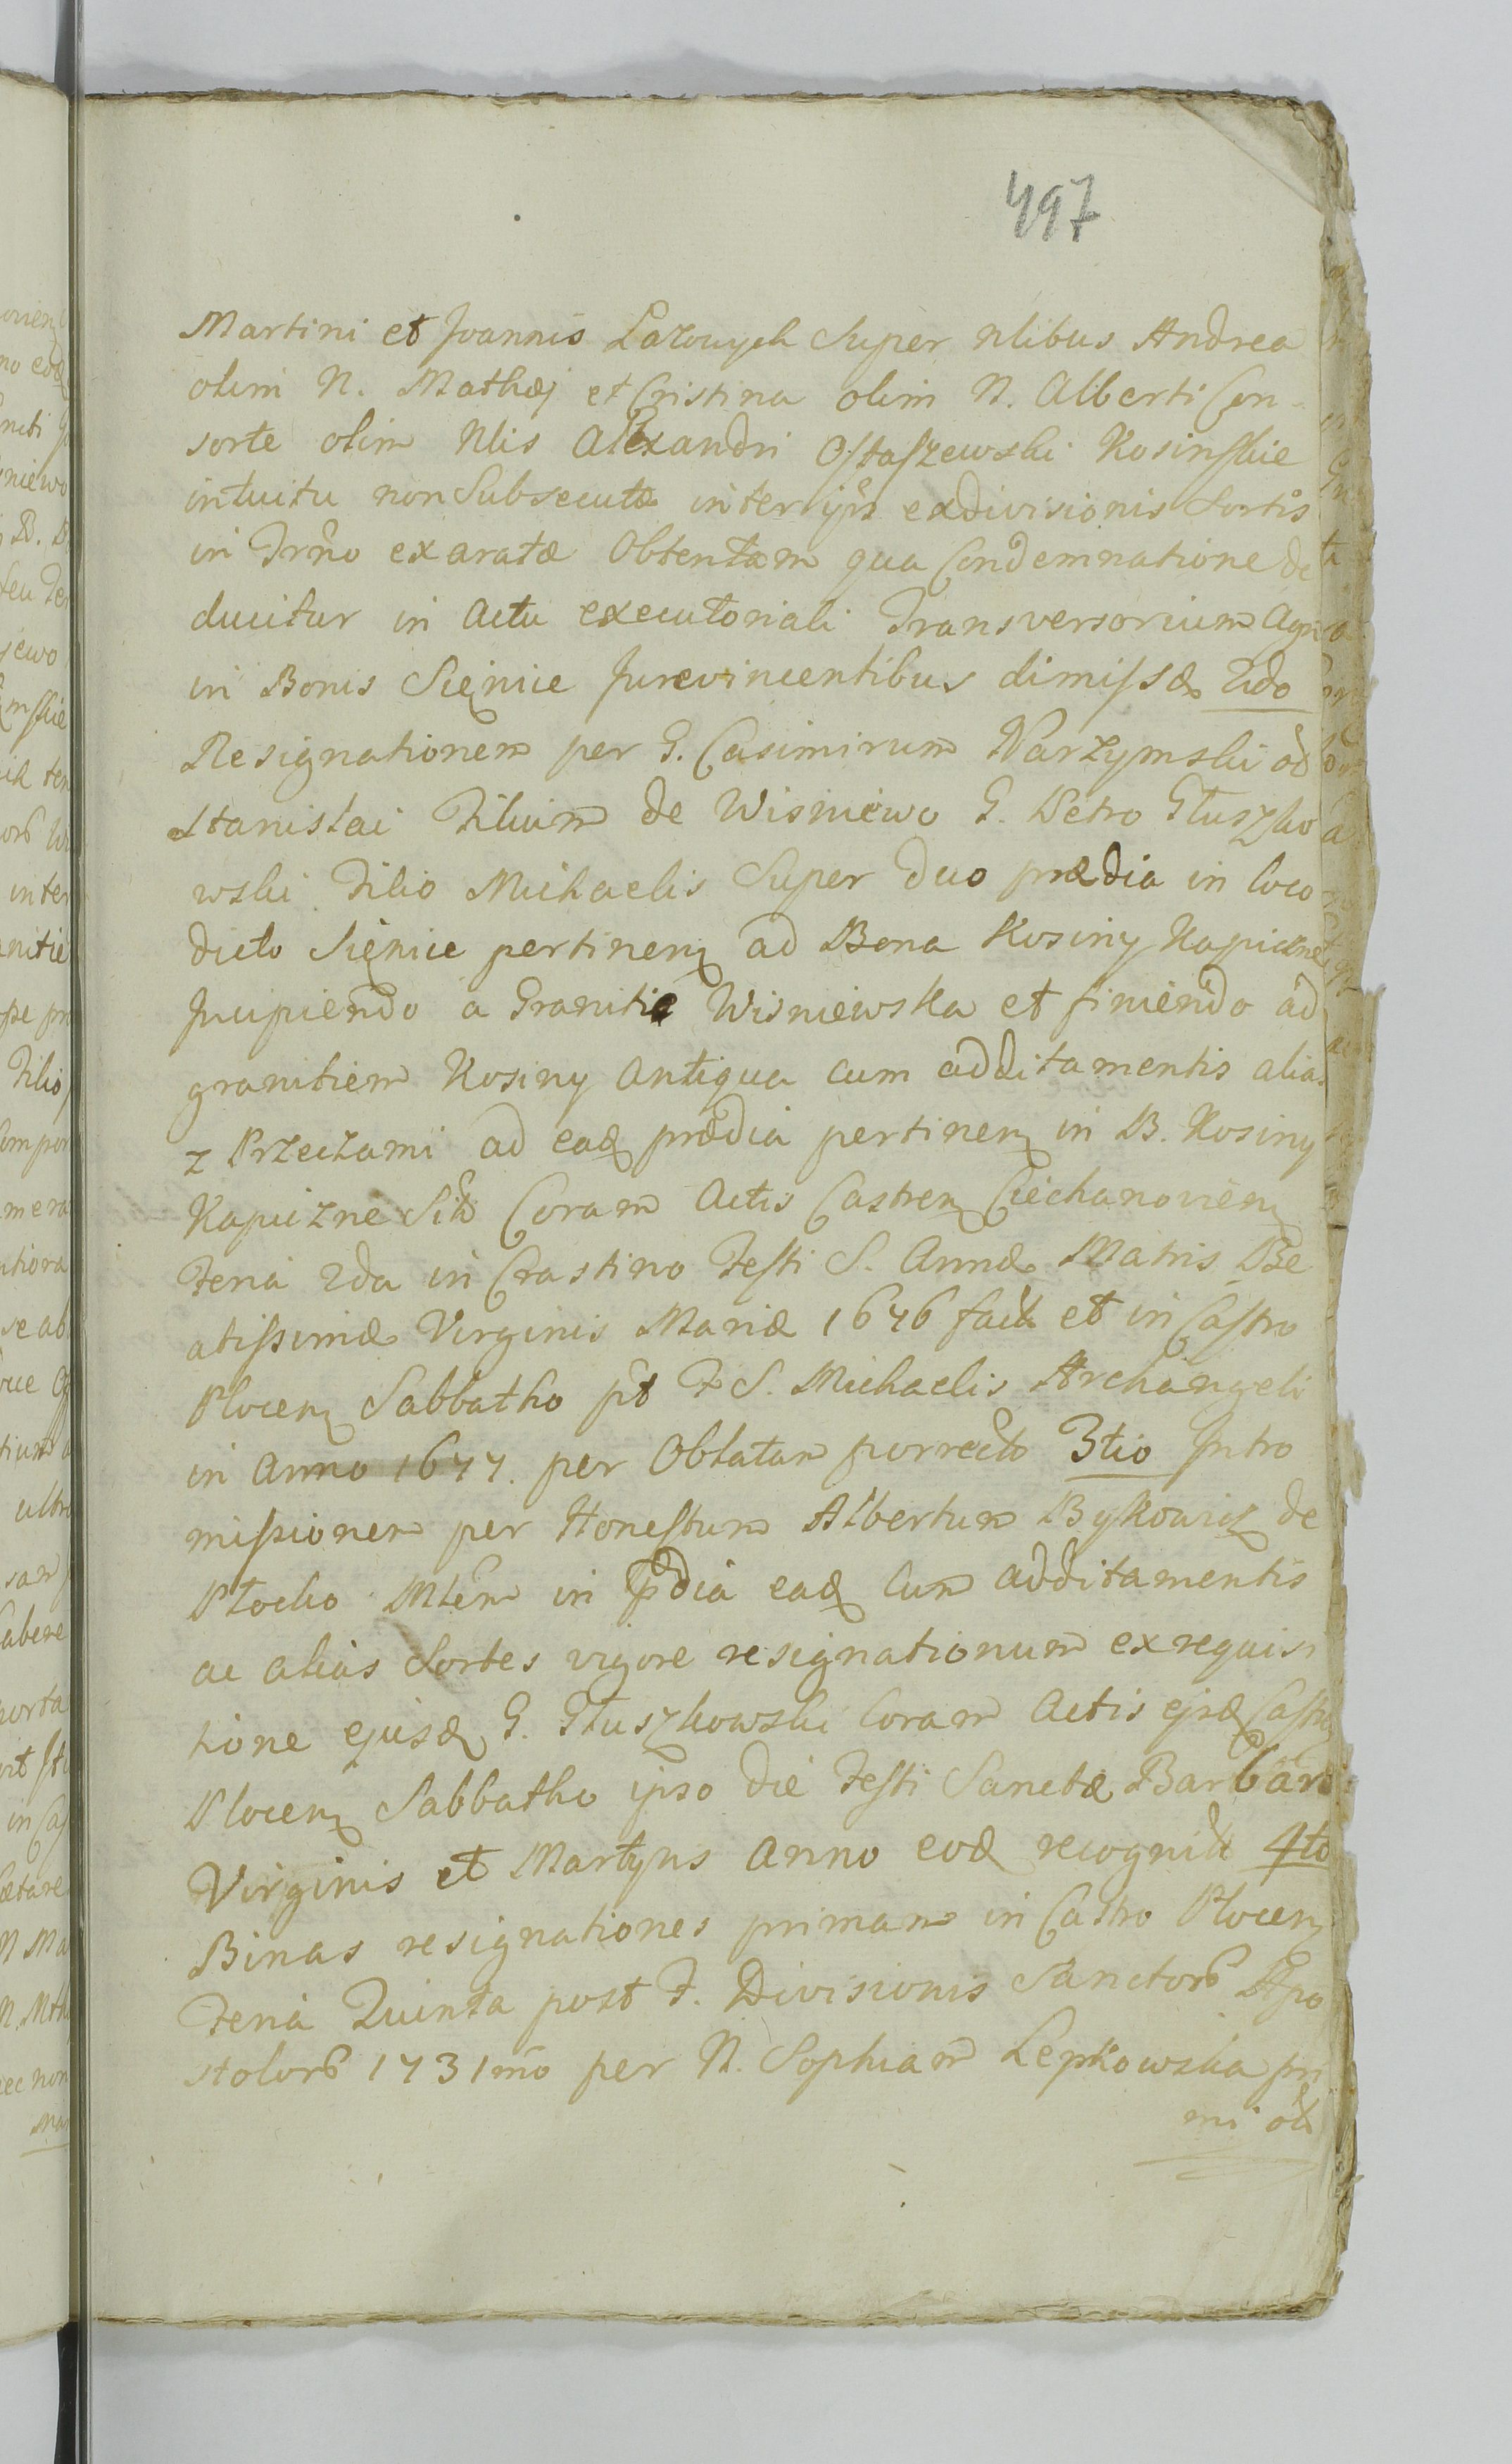 497
Martini et Joannis Lazowych Super Nlibus Andrea
olim N. Mathæj et Cristina olim N. Alberti Con-
sorte olim Nlis Alexandri Ostaszewski Kosinskie
intuitu non Subsecutæ inter ipsos exdivisionis Sortis
in Trno exaratæ Obtentam qua Condemnatione de
ducitur in Actu executoriali Transversorium Agri
in Bonis Sięnice Jurevincentibus dimissæ 2do
Resignationem per G. Casimirum Narzymski od
Stanislai Filium de Wisniewo G. Petro Głuszko
wski Filio Michaelis Super duo prædia in loco
dicto Sięnice pertinen ad Bona Kosiny Kapiczne
Incipiendo a Granitie Wisniewska et finiendo ad
granitiem Kosiny Antiqua cum additamentis alias
z Przeczami ad eaд prædia pertinen in B. Kosiny
Kapiczne Sit Coram Actis Castren Ciechanovien
Feria 2da in Crastino Festi S. Annæ Matris Be
atissimæ Virginis Mariæ 1676 fact et in Castro
Plocen Sabbatho pt F S. Michaelis Archangeli
in Anno 1677. per Oblatam porrecto 3tio Intro
missionem per Honestum Albertum Byskowicz de
Płocko Mlem in pdia ead Cum additamentis
ac alias Sortes vigore resignationum ex requisi
tione ejusd G. Głuszkowski Coram Actis ejsd Castri
Plocen Sabbatho ipso die Festi Sanctæ Barbaræ
Virginis et Martyris Anno eod recognit 4to
Binas resignationes primam in Castro Plocen
Feria Quinta post F. Divisionis Sanctor Apo
stolor 1731mo per N. Sophiam Lepkowska pri
mi